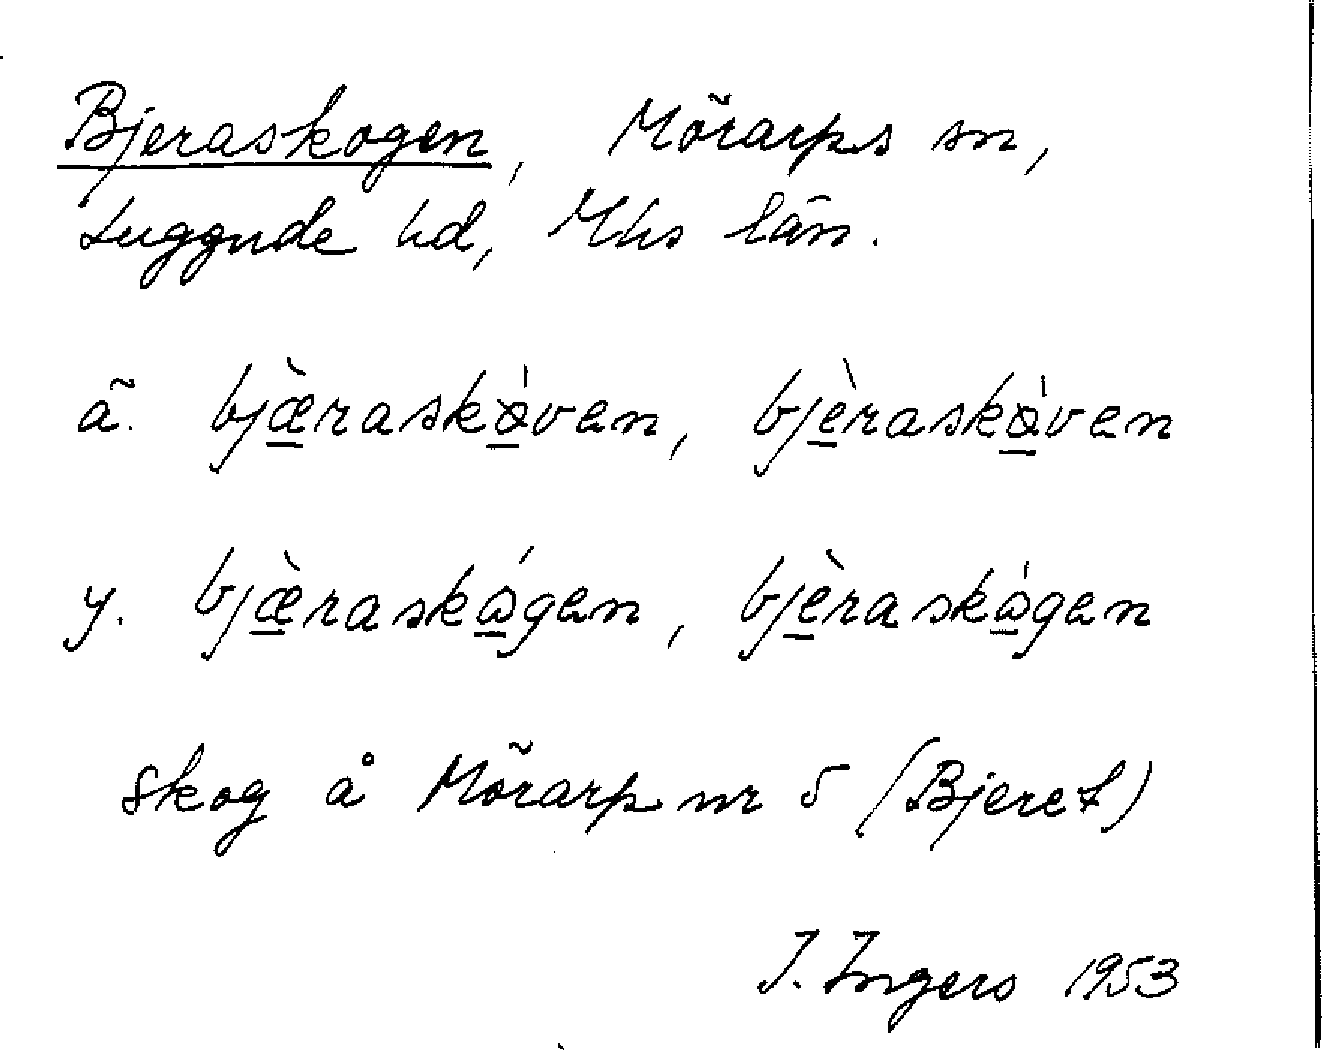 Bjeraskogen, Mörarps sn,
Luggude hd, Mhs län.
ä. bjæ̱̀raskǿ̱ven, bjè̱raskǿ̱ven
y. bjæ̱̀raskó̱gen, bjè̱raskó̱gen
skog å Mörarp nr 5 (Bjeret)
I. Ingers 1953